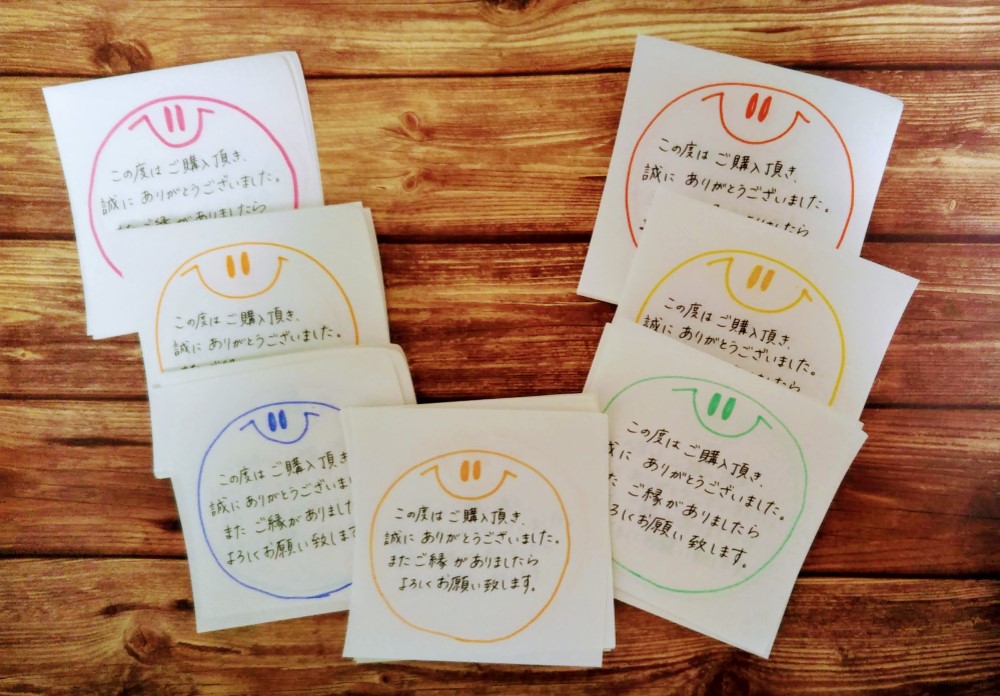 この度は ご購入頂き、
誠に ありがとうございました。
ご縁がありましたら
この度は ご購入頂き、
誠に ありがとうございました。
この度は ご購入頂き
誠に ありがとうございま
また ご縁が ありました
よろしくお願い致します
この度は ご購入頂き、
誠に ありがとうございました。
また ご縁 が ありましたら
よろしくお願い致します。
この度は ご購入頂き、
誠に ありがとうございました。
ありましたら
この度は ご購入頂き、
誠に ありがとうございました。
たら
この度は ご購入頂き、
に ありがとうございました。
た ご縁が ありましたら
ろしくお願い致します。